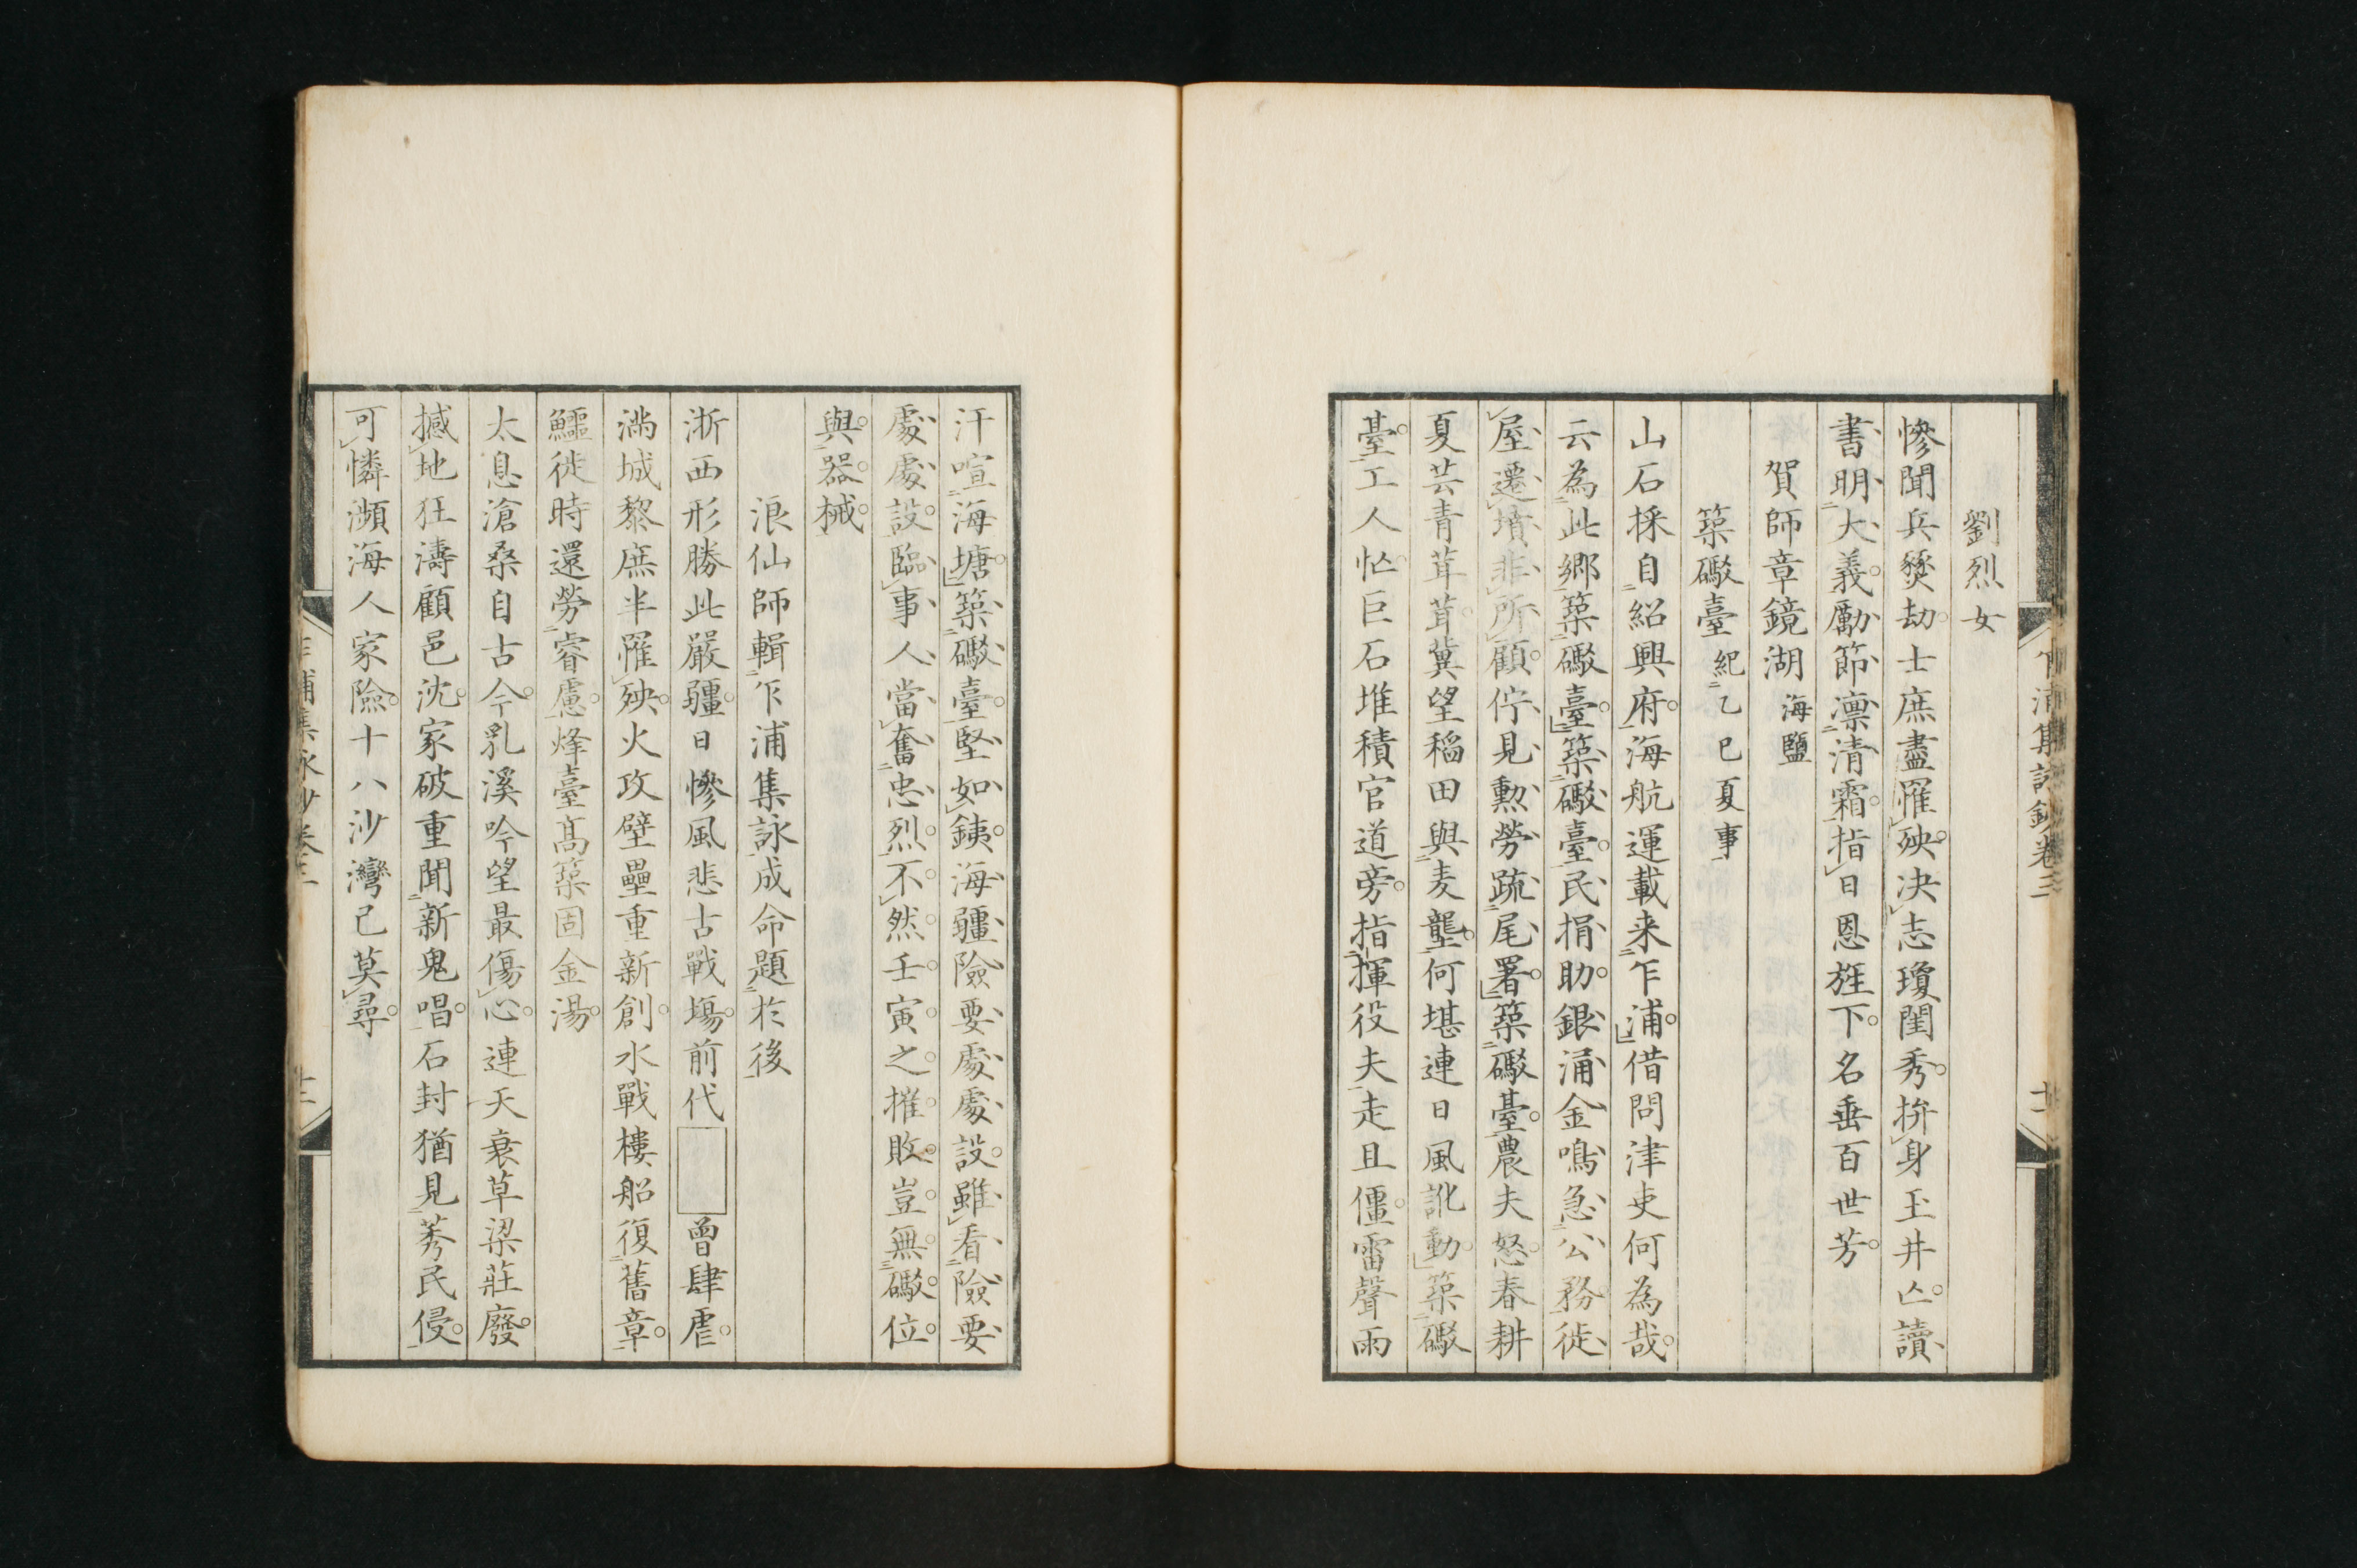 劉烈女
慘聞兵燹劫士庶盡罹殃决志瓊閨秀拚身玉井亡讀
書明大義勵節凛清霜指日恩旌下名垂百世芳
賀師章鏡湖海鹽
築礮臺紀乙巳夏事
山石採自紹興府海航運載来乍浦借問津吏何為哉
云為此鄉築礮臺築礮臺民捐助銀涌金鳴急公務徙
屋遷墳非所顧佇見勲勞疏尾署築礮臺農夫怒春耕
夏芸青茸茸冀望稻田與麦壟何堪連日風訛動築礮
臺工人忙巨石堆積官道旁指揮役夫走且僵雷聲雨
汗喧海塘築礮臺堅如銕海疆險要處處設雖看險要
處處設臨事人當奮忠烈不然壬寅之摧敗豈無礮位
與器械
浪仙師輯乍浦集詠成命題於後
浙西形勝此嚴疆日慘風悲古戰塲前代曽肆虐
满城黎庶半罹殃火攻壁壘重新創水戰樓船復舊章
鱷徙時還勞睿慮烽臺髙築固金湯
太息滄桑自古今乳溪吟望最傷心連天衰草梁莊廢
撼地狂濤顧邑沈家破重聞新鬼唱石封猶見莠民侵
可憐瀕海人家險十八沙灣已莫尋